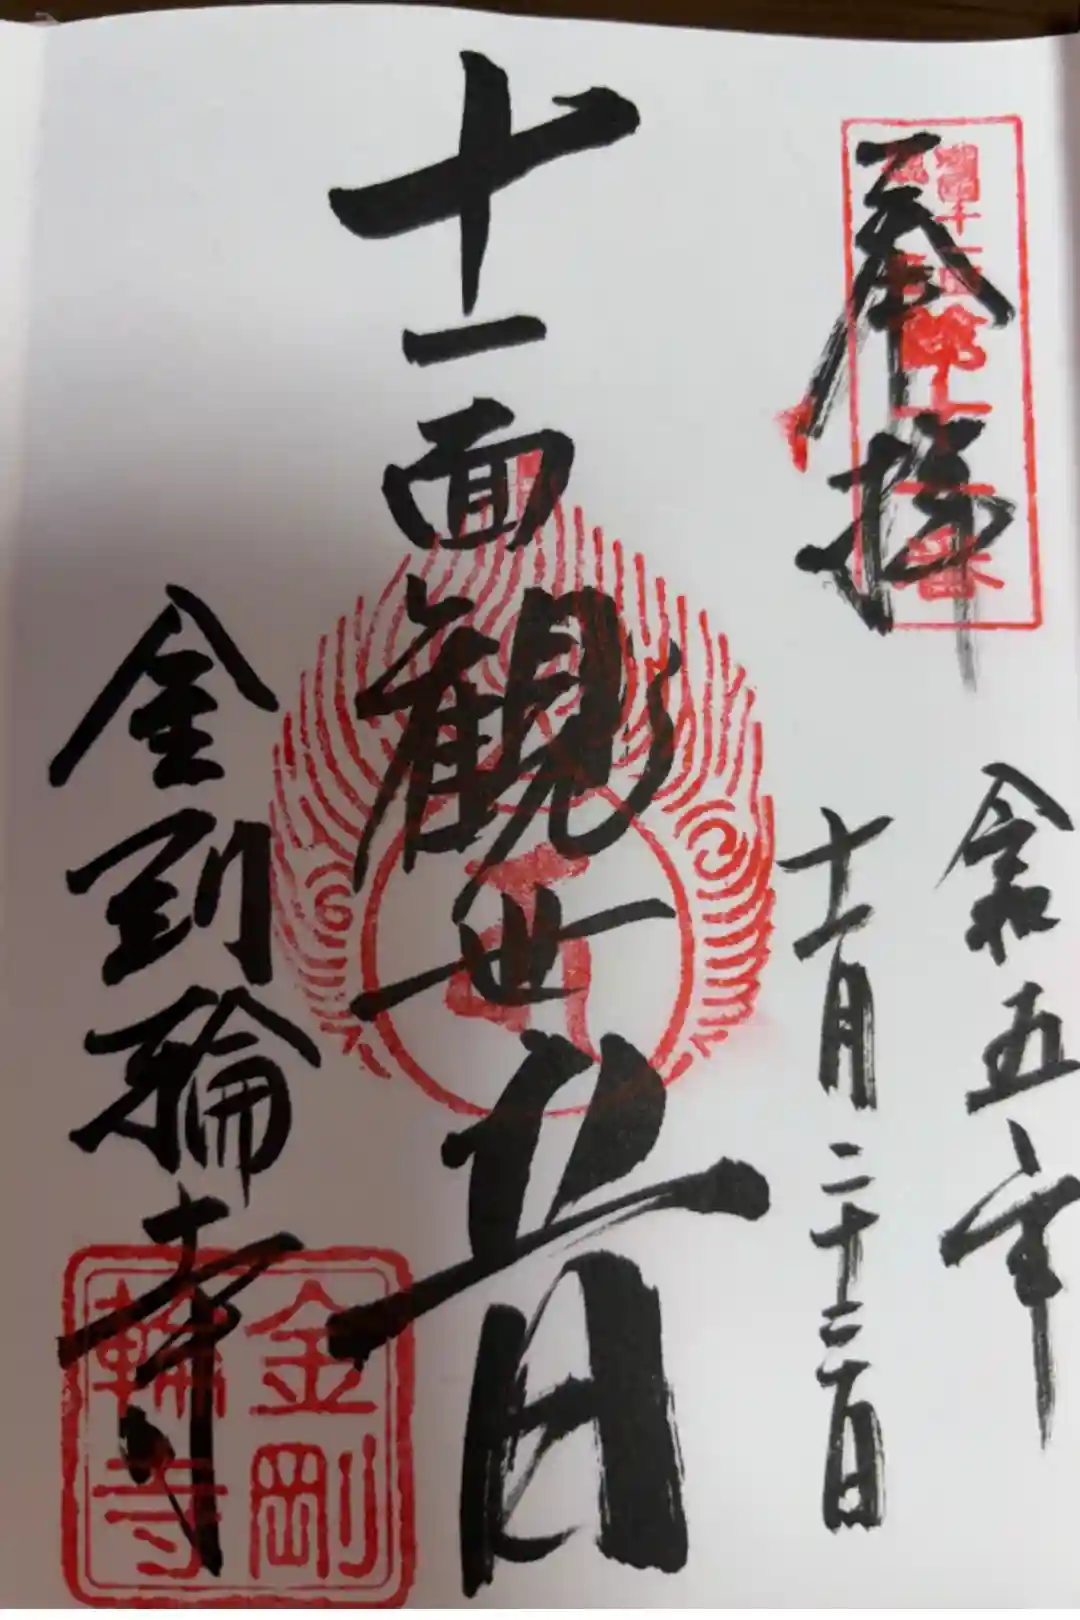 奉拝
令和五年
十一月二十三日
十一面観世音
金剛輪寺
金剛
輪寺